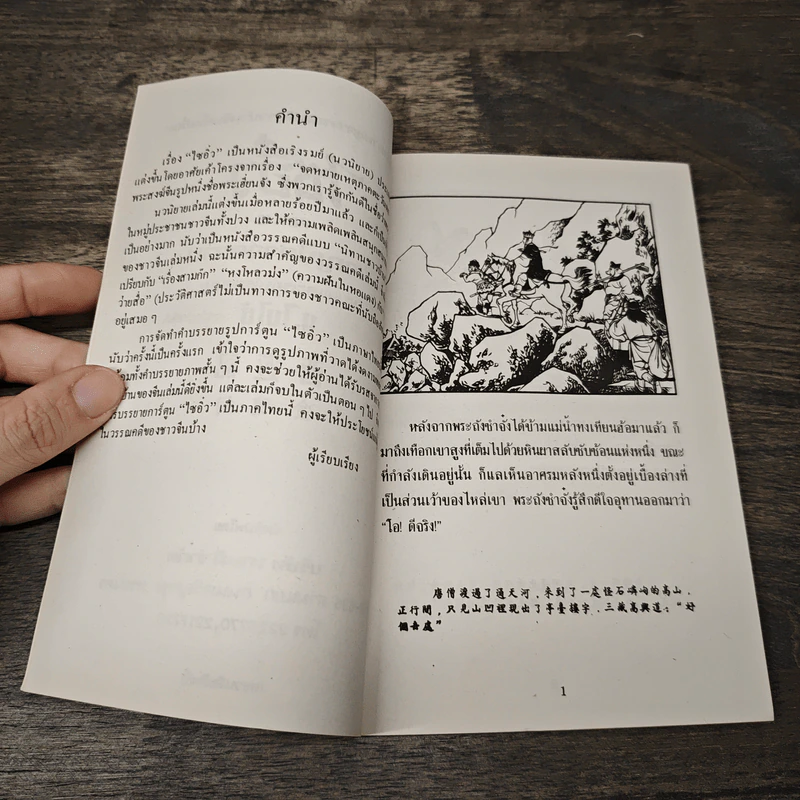 คำนำ
เรื่อง “ไซอิ๋ว” เป็นหนังสือเริงรมย์ (นวนิยาย)
แต่งขึ้นโดยอาศัยเค้าโครงจากเรื่อง “จดหมายเหตุภาคตะวัน
พระสงฆ์จีนรูปหนึ่งชื่อพระเฮี่ยนจัง ซึ่งพวกเรารู้จักกันดีในชื่อว่
นวนิยายเล่มนี้แต่งขึ้นเมื่อหลายร้อยปีมาแล้ว และก็เป็น
ในหมู่ประชาชนชาวจีนทั้งปวง และให้ความเพลิดเพลินสนุกสน
เป็นอย่างมาก นับว่าเป็นหนังสือวรรณคดีแบบ “นิทานชาวบ้าน
ของชาวจีนเล่มหนึ่ง ฉะนั้นความสำคัญของวรรณคดีเล่มนี้
เปรียบกับ “เรื่องสามก๊ก” “หงโหลวม่ง” (ความฝันในหอแดง)
ว่ายสื่อ” (ประวัติศาสตร์ไม่เป็นทางการของชาวคณะที่นับถือ
อยู่เสมอ ๆ
การจัดทำคำบรรยายรูปการ์ตูน “ไซอิ๋ว” เป็นภาษาไทย
นับว่าครั้งนี้เป็นครั้งแรก เข้าใจว่าการดูรูปภาพที่วาดได้งดงาม
้อมทั้งคำบรรยายภาพสั้น ๆ นี้ คงจะช่วยให้ผู้อ่านได้รับรสชา
านของจีนเล่มนี้ดียิ่งขึ้น แต่ละเล่มก็จบในตัวเป็นตอน ๆ ไป
รบรรยายการ์ตูน “ไซอิ๋ว” เป็นภาคไทยนี้ คงจะให้ประโยชน์
ในวรรณคดีของชาวจีนบ้าง
ผู้เรียบเรียง
หลังจากพระถังซำจั๋งได้ข้ามแม่น้ำทงเทียนฮ้อมาแล้ว ก็
มาถึงเทือกเขาสูงที่เต็มไปด้วยหินยาสลับซับซ้อนแห่งหนึ่ง ขณะ
ที่กำลังเดินอยู่นั้น ก็แลเห็นอาศรมหลังหนึ่งตั้งอยู่เบื้องล่างที่
เป็นส่วนเว้าของไหล่เขา พระถังซำจั๋งรู้สึกดีใจอุทานออกมาว่า
“โอ! ดีจริง!”
唐僧渡過了通天河，來到了一處怪石嶙峋的高山．
正行間，只見山凹裡現出了亭臺樓宇．三藏高興道：“好
個去處”
1